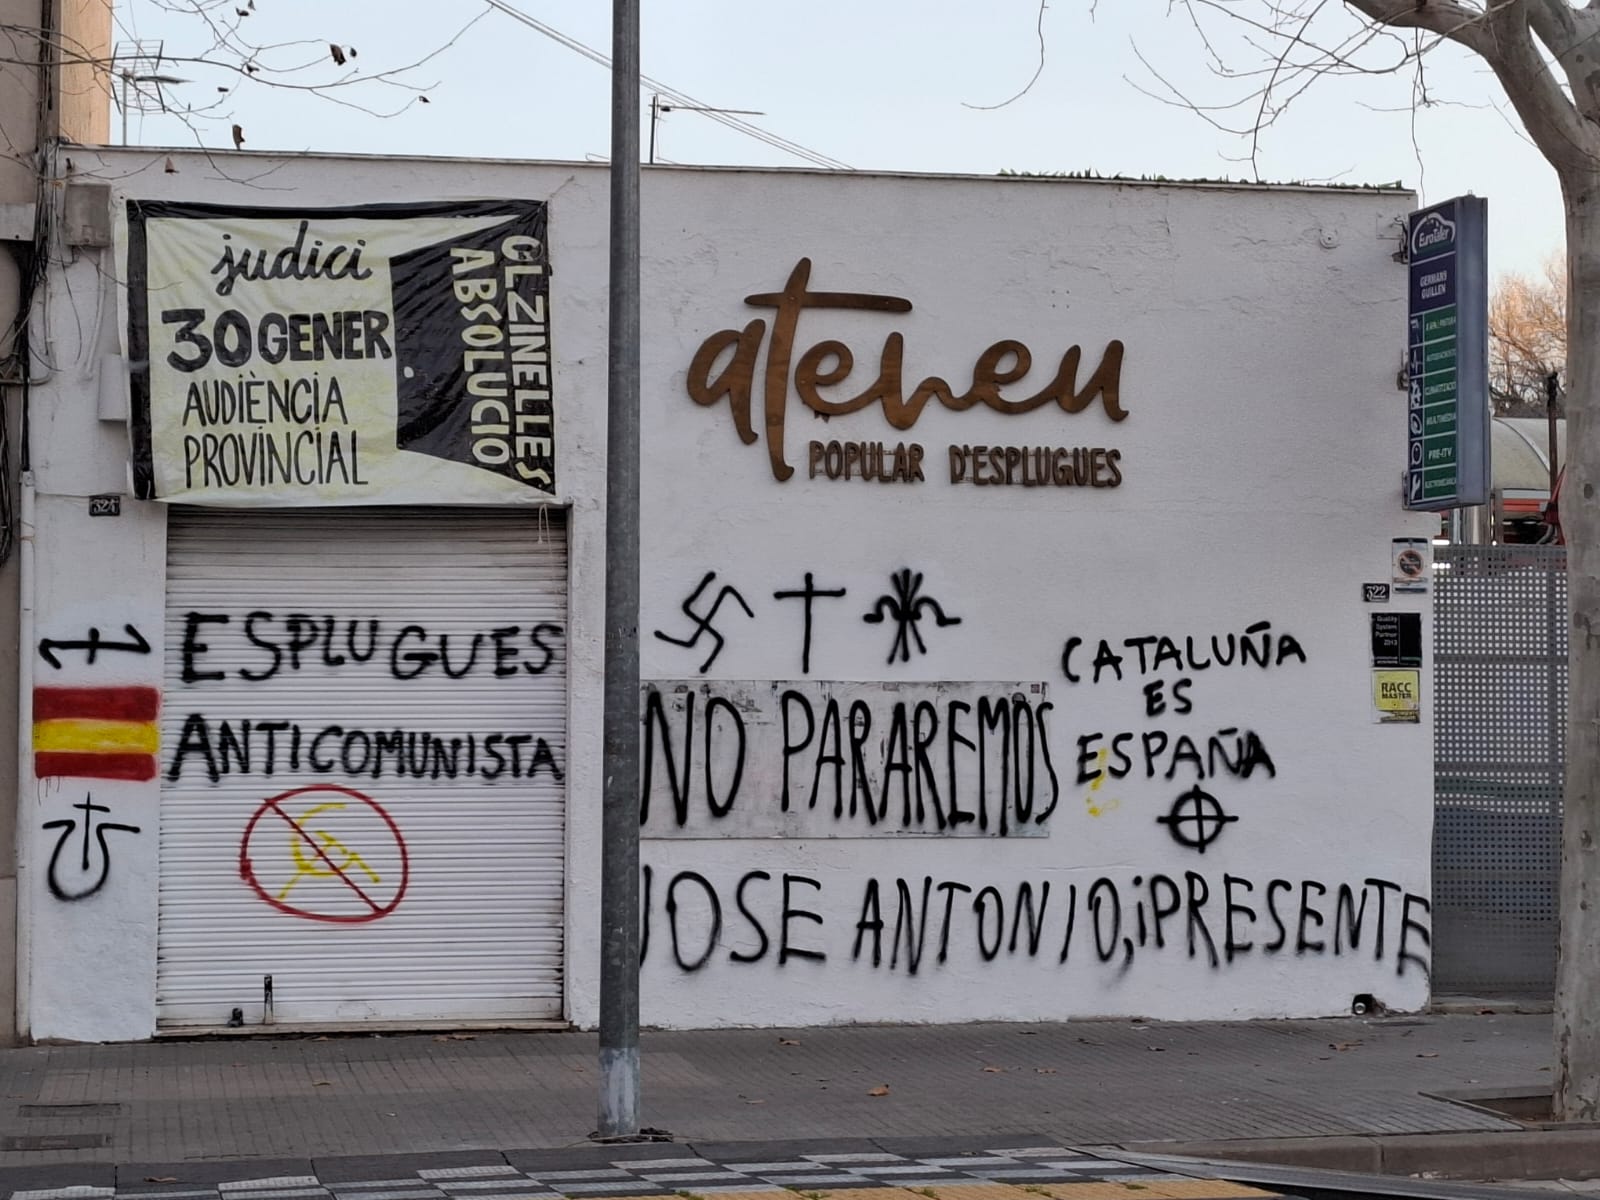 judici
30 GENER
AUDIÈNCIA
PROVINCIAL
OLZINELLES
ABSOLUCIÓ
ateneu
POPULAR D'ESPLUGUES
EuroTaller
GERMANS
GUILLEN
MULTIMEDIA
PRE-ITV
324
322
Quality
System
Partner
2013
RACC
MASTER
ESPLUGUES
ANTICOMUNISTA
NO PARAREMOS
CATALUÑA
ES
ESPAÑA
JOSE ANTONIO, ¡PRESENTE